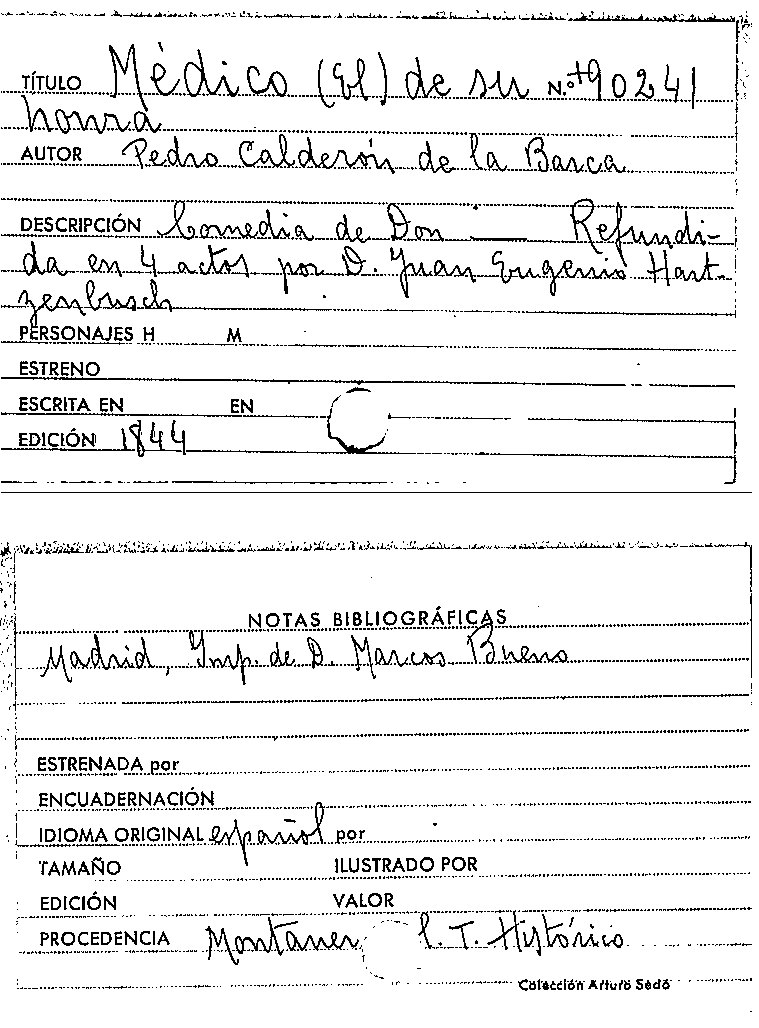 TÍTULO Médico (El) de su N.º +90241
honra
AUTOR Pedro Calderón de la Barca
DESCRIPCIÓN Comedia de Don —— Refundi-
da en 4 actos por D. Juan Eugenio Hart-
zenbusch
PERSONAJES H M
ESTRENO
ESCRITA EN EN
EDICIÓN 1844
NOTAS BIBLIOGRÁFICAS
Madrid, Imp. de D. Marcos Bueno
ESTRENADA por
ENCUADERNACIÓN
IDIOMA ORIGINAL español por
TAMAÑO ILUSTRADO POR
EDICIÓN VALOR
PROCEDENCIA Montaner C. T. Histórico
Colección Arturo Sedó